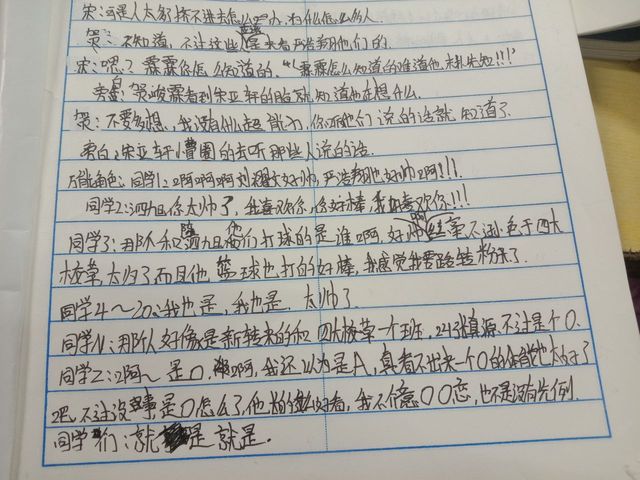 宋：可是人太多挤不进去怎么办，为什么怎么多人
贺：不知道，不过这些应该是来看严浩翔他们的.
宋：嗯？霖霖你怎么知道的.“霖霖怎么知道的难道他未扑先知!!!”
旁白：贺峻霖看到宋亚轩的脸就知道他在想什么.
贺：不要多想，我没有什么超能力，你听他们说的话就知道了
旁白：宋亚轩懵圈的去听那些人说的话.
万能角色：同学1：啊啊啊刘耀文好帅，严浩翔也好帅啊!!!
同学2：泗旭你太帅了，我喜欢你，你好棒，我喜欢你!!!
同学3：那个和陈泗旭他们打球的是谁啊，好帅 不逊色于四大
校草，太帅了而且他篮球也打的好棒，我感觉我要路转粉了.
同学4～20：我也是，我也是. 太帅了
同学N：那个人好像是新转来的和四大校草一个班，叫张真源不过是个O.
同学Z：啊～是O，啊，我还以为是A，真看不出来一个O的体能也太好了
吧，不过没事是O怎么了，他长的这么好看，我不介意OO恋，也不是没有先例.
同学们：就是就是.